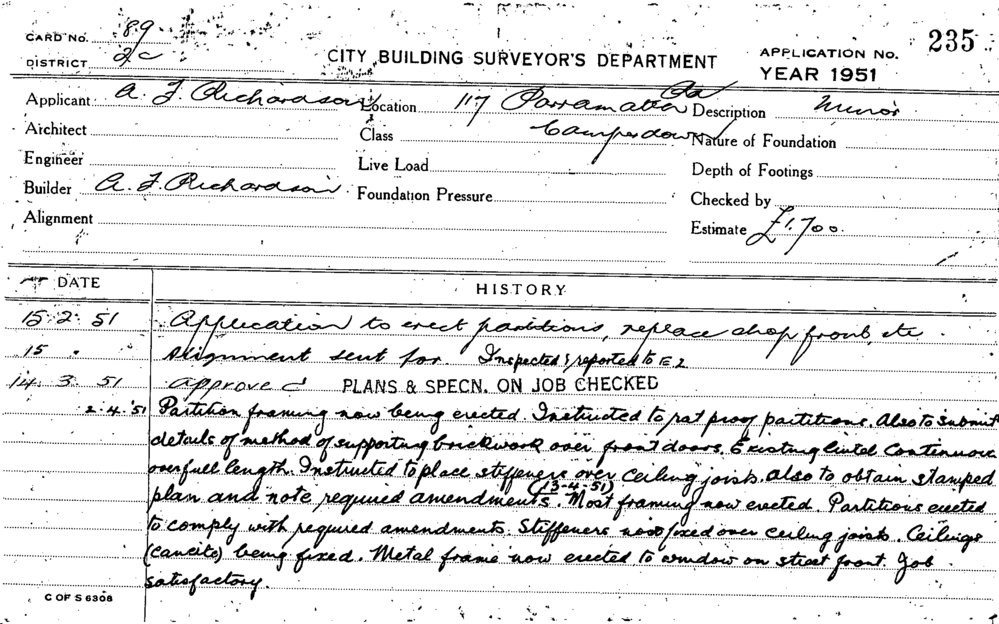 CARD NO. 89
DISTRICT 2c
CITY BUILDING SURVEYOR'S DEPARTMENT
APPLICATION NO. 235
YEAR 1951
Applicant A. F. Richardson Location 117 Parramatta Rd Description Minor
Architect Class Camperdown Nature of Foundation
Engineer Live Load Depth of Footings
Builder A. F. Richardson Foundation Pressure Checked by
Alignment Estimate £1,700.
DATE HISTORY
15.2.51 Application to erect partitions, replace shop front, etc.
15 " Alignment sent for. Inspected & reported to E2
14.3.51 approved PLANS & SPECN. ON JOB CHECKED
2.4.51 Partition framing now being erected. Instructed to rat proof partitions. Also to submit
details of method of supporting brickwork over front doors. Existing lintel continuous
over full length. Instructed to place stiffeners over ceiling joists. also to obtain stamped
plan and note required amendments. (13-4-51) Most framing now erected. Partitions erected
to comply with required amendments. Stiffeners now fixed over ceiling joists. Ceilings
(cancite) being fixed. Metal frame now erected to window on street front. Job
satisfactory.
C OF S 6308